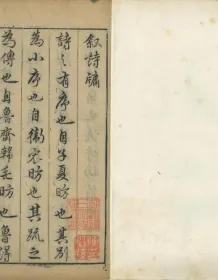 叙詩牖
詩之有序也自子夏昉也其別
為小序也自衛宏昉也其疏之
為傳也自魯齊韓毛昉也魯得